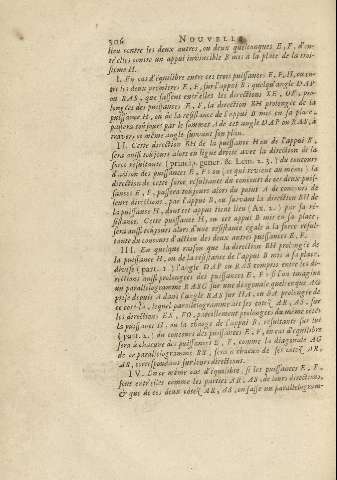 306 NOUVELLE
lieu contre les deux autres, ou deux quelconques E, F, d'en-
tr'elles contre un appui invincible B mis à la place de la troi-
siéme H.
I. En cas d'équilibre entre ces trois puissances E, F, H, ou en-
tre les deux premieres E, F, sur l'appui B: quelqu'angle DAP
ou RAS, que fassent entr'elles les directions
des puissances E, F, la direction BH prolongée de la
puissance H, ou de la résistance de l'appui B mis en sa place,
passera toûjours par le sommet A de cet angle DAP ou RAS, à
travers ce même angle suivant son plan.
II. Cette direction BH de la puissance H ou de l'appui B,
sera aussi toûjours alors en ligne droite avec la direction de la
force résultante (princip. gener. & Lem. 2. 3.) du concours
d'action des puissances E, F: ou (ce qui revient au même) la
direction de cette force résultante du concours de ces deux puis-
sances E, F, passera toûjours alors du point A de concours de
leurs directions, par l'appui B, ou suivant la direction BH de
la puissance H, dont cet appui tient lieu (Ax. 2.) par sa ré-
sistance. Cette puissance H, ou cet appui B mis en sa place,
sera aussi toûjours alors d'une résistance égale à la force résul-
tante du concours d'action des deux autres puissances E, F.
III. En quelque raison que la direction BH prolongée de
la puissance H, ou de la résistance de l'appui B mis à sa place,
divise (part. 1.) l'angle DAP ou RAS compris entre les di-
rections aussi prolongées des puissances E, F: si l'on imagine
un parallelogramme RASG sur une diagonale quelconque AG
prise depuis A dans l'angle RAS sur HA, ou BA prolongée de
ce côté-là, lequel parallelogramme ait ses côtez AR, AS, sur
les directions EA, FO, pareillement prolongées du même côté:
la puissance H, ou la charge de l'appui B, résultante sur lui
(part. 2.) du concours des puissances E, F, en cas d'équilibre
sera à chacune des puissances E, F, comme la diagonale AG
de ce parallelogramme RS, sera à chacun de ses côtez AR,
AS, correspondans sur leurs directions.
IV. En ce même cas d'équilibre, si les puissances E, F,
sont entr'elles comme les parties AR, AS, de leurs directions,
& que de ces deux côtez AR, AS, on fasse un parallelogram-